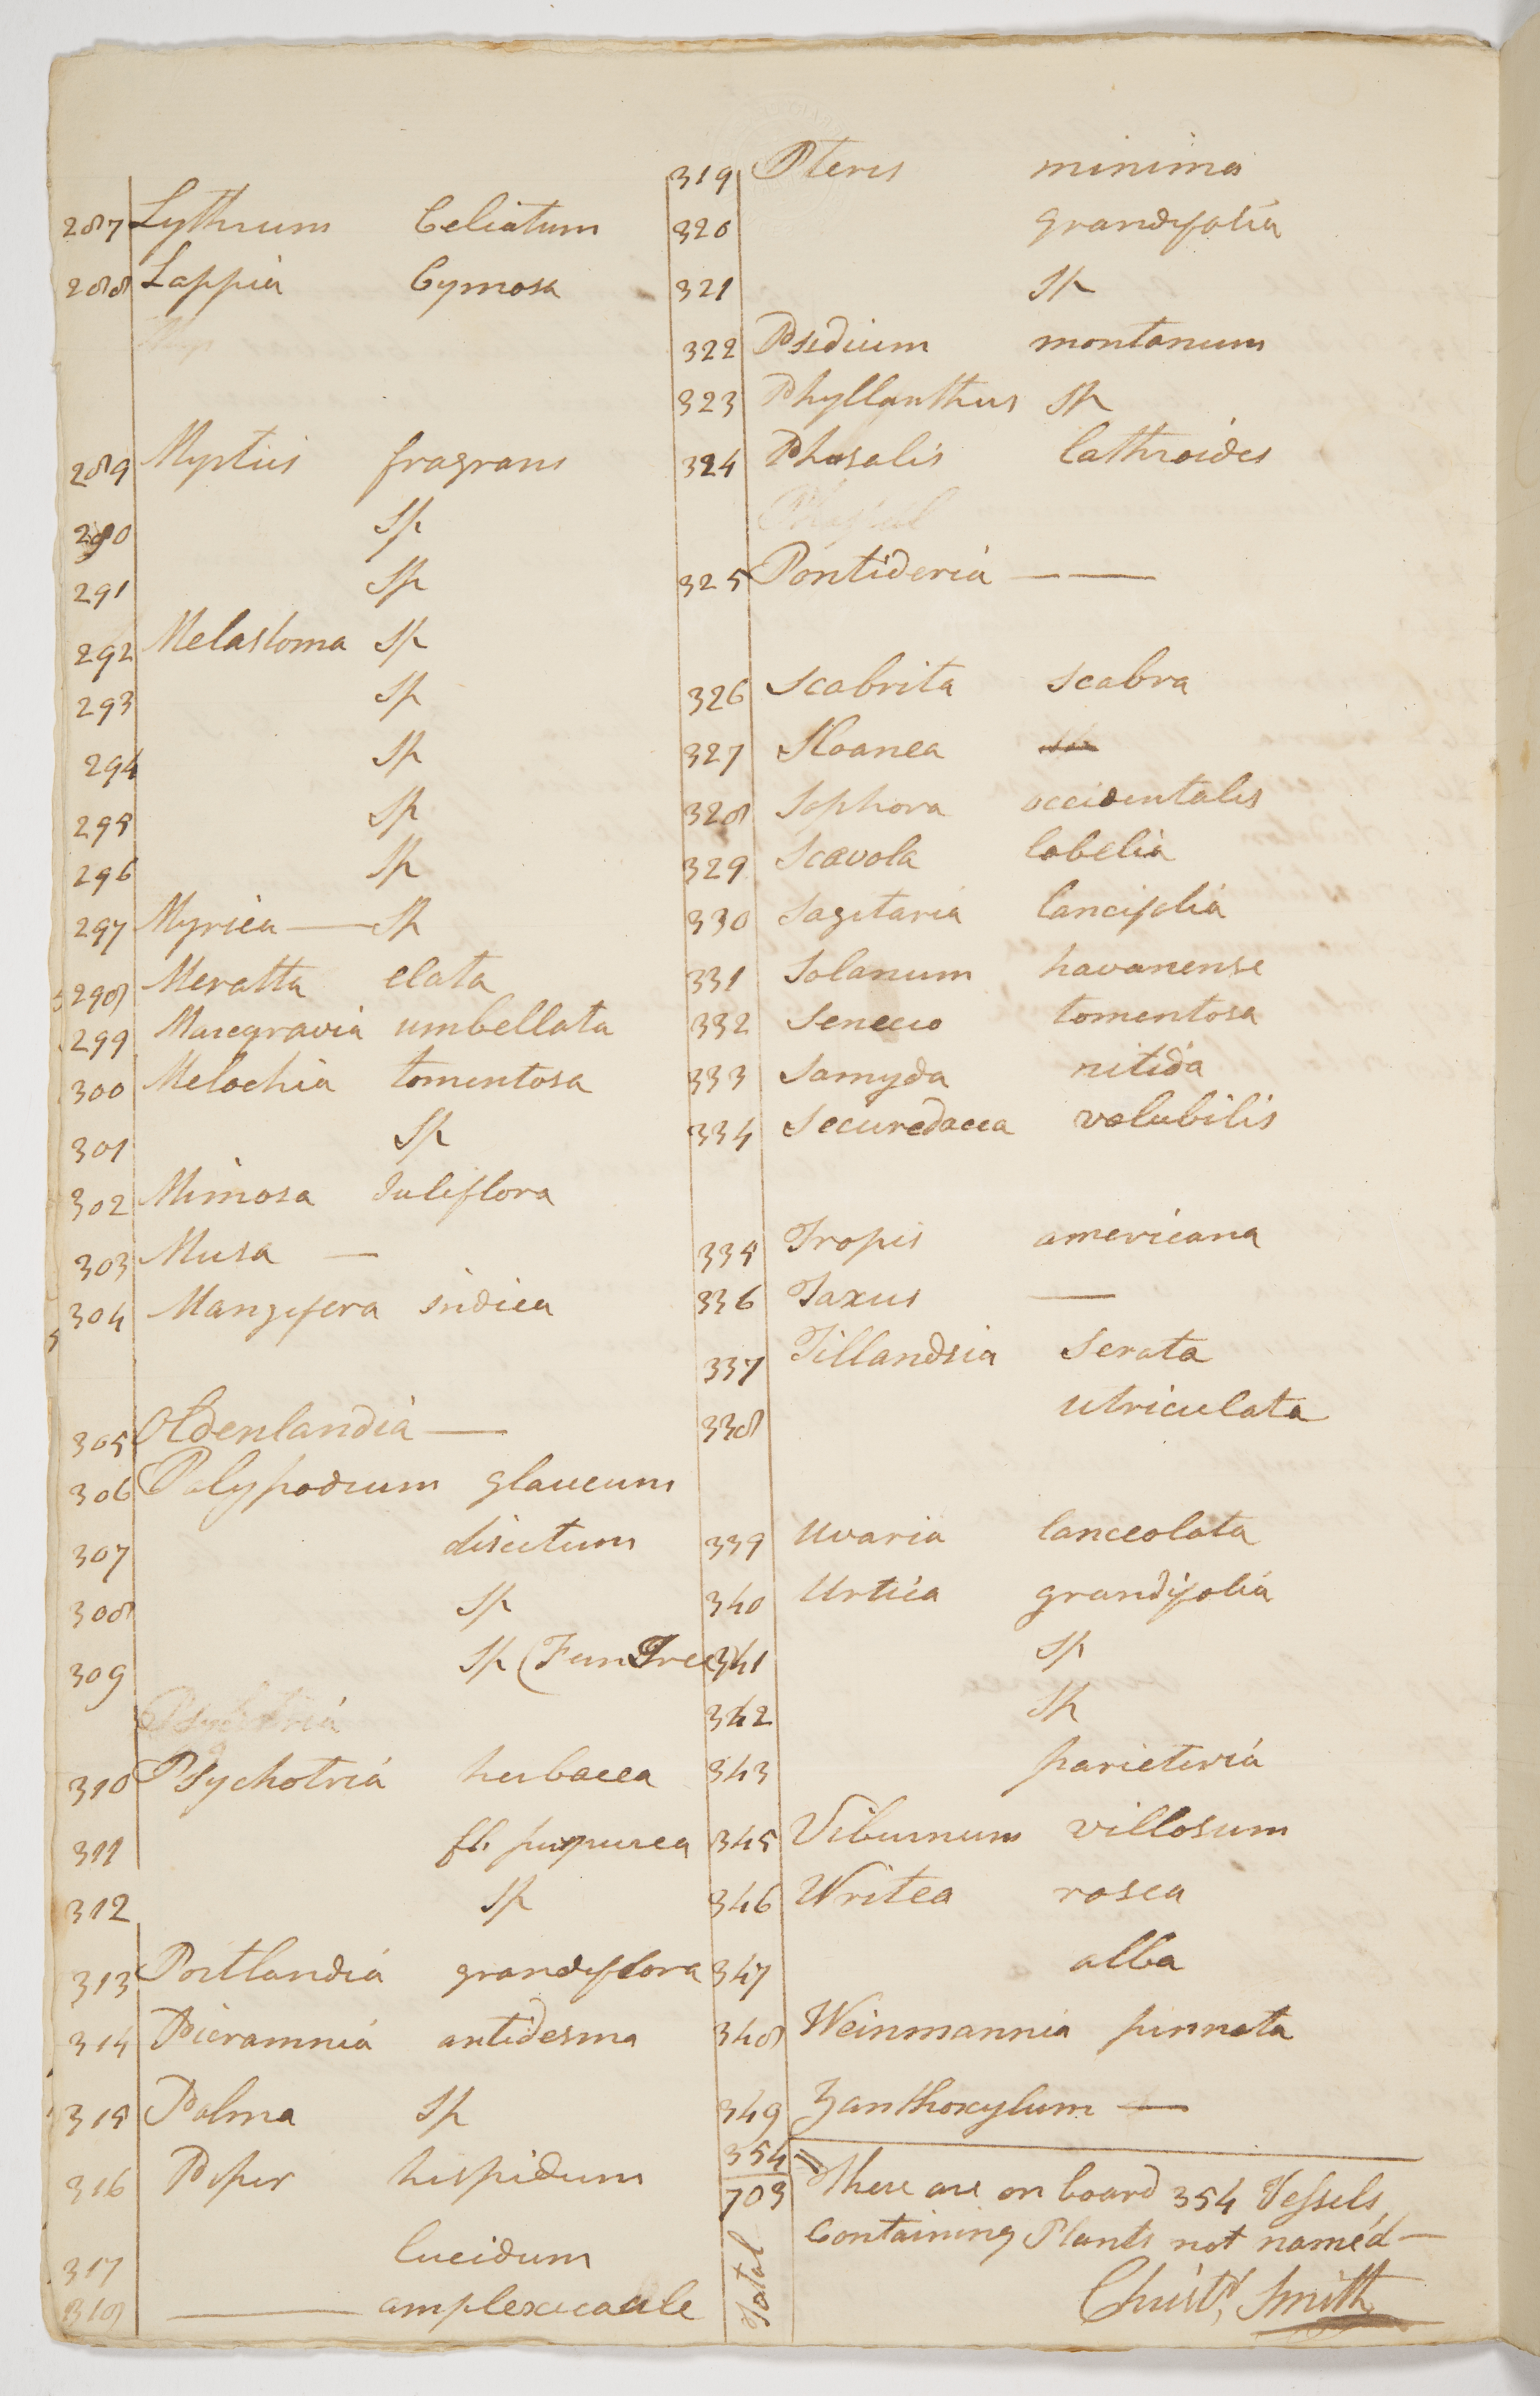 287 Lythrum Celiatum
288 Lappia Cymosa
289 Myrtus fragrans
290 Sp
291 Sp
292 Melastoma Sp
293 Sp
294 Sp
295 Sp
296 Sp
297 Myrica — Sp
298 Meratta elata
299 Marcgravia umbellata
300 Melochia tomentosa
301 Sp
302 Mimosa Juliflora
303 Musa —
304 Mangifera indica
305 Oldenlandia —
306 Polypodium glaucum
307 discetum
308 Sp
309 Sp (Furn Tree)
310 Psychotria herbacea
311 fl. purpurea
312 Sp
313 Portlandia grandiflora
314 Picramnia antidesma
315 Palma Sp
316 Piper hispidum
317 lucidum
318 — amplexicaule
319 Pteris minima
320 grandifolia
321 Sp
322 Psidium montanum
323 Phyllanthus Sp
324 Phasalis lathroides
325 Pontideria — —
326 Scabrita scabra
327 Sloanea
328 Sophora occidentalis
329 Scavola lobelia
330 Sagitaria lancifolia
331 Solanum havanense
332 Senecio tomentosa
333 Samyda nitida
334 Securedacea volubilis
335 Tropis americana
336 Taxus —
337 Tillandsia Serata
338 utriculata
339 Uvaria lanceolata
340 Urtica grandifolia
341 Sp
342 Sp
343 parieteria
345 Viburnum villosum
346 Writea rosea
347 alba
348 Weinmannia pinnata
349 Zanthoxylum —
354 There are on board 354 Vessels
703 Containing Plants not named —
Total
Christr. Smith